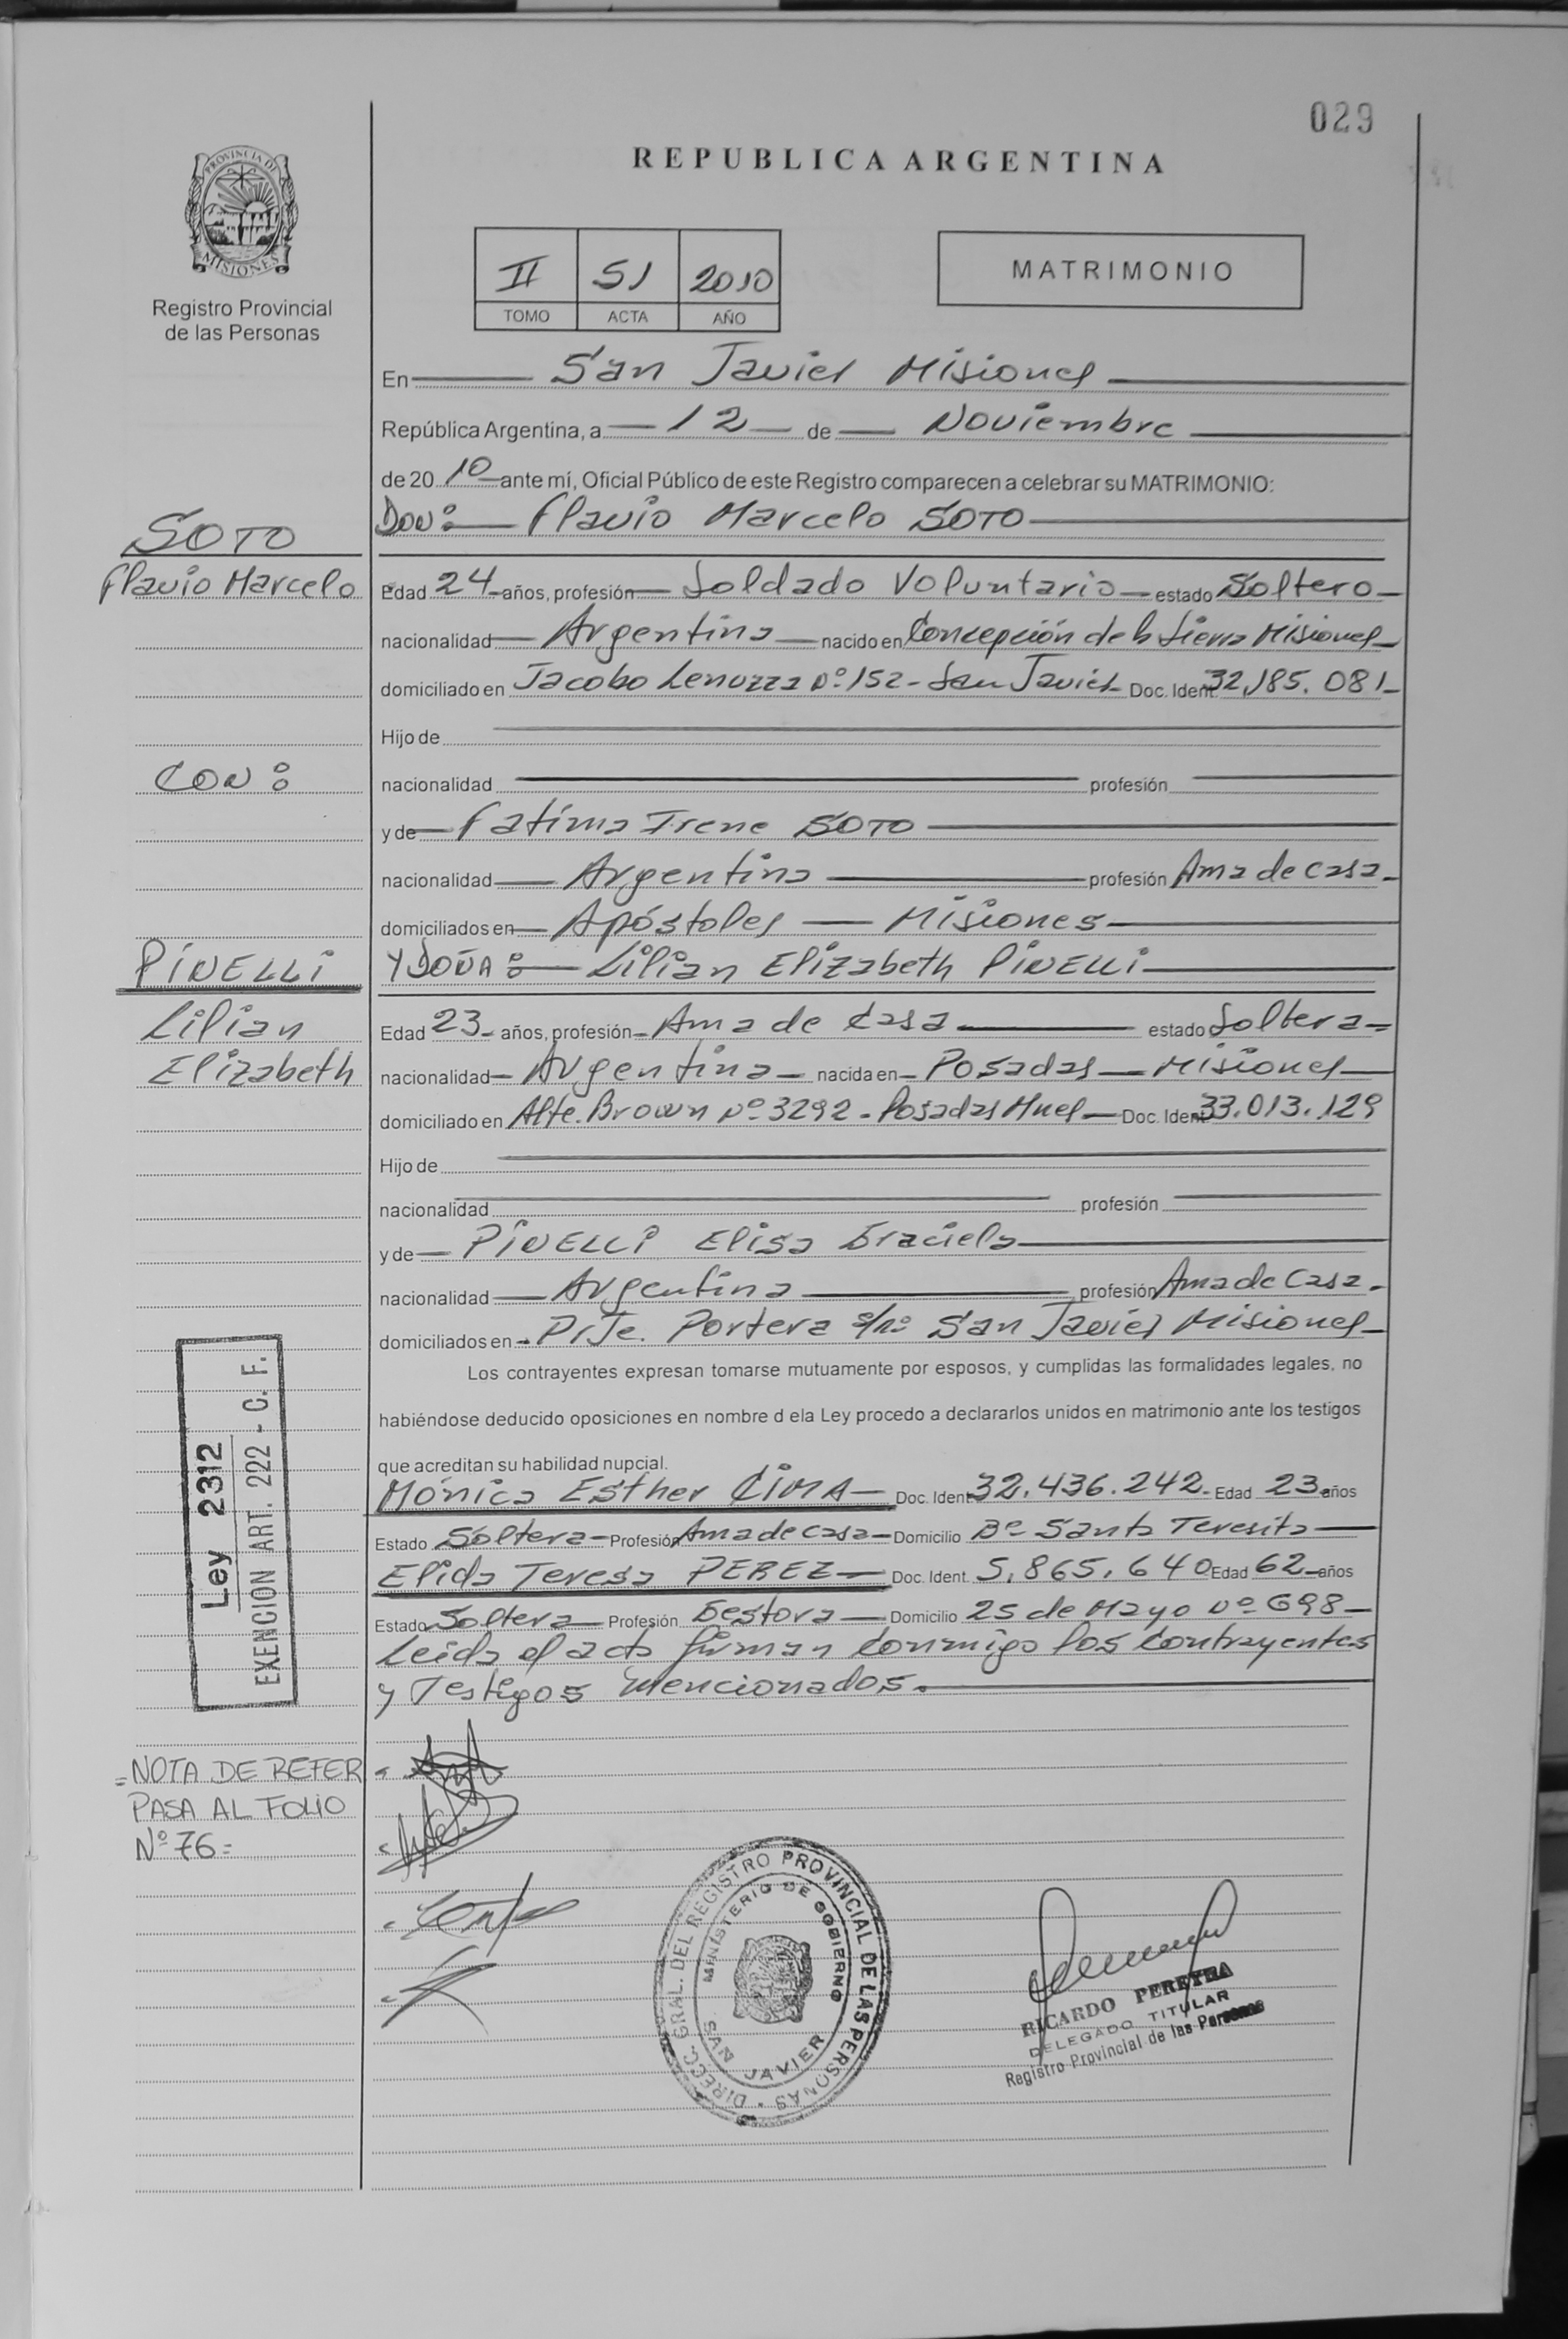 029
REPUBLICA ARGENTINA
PROVINCIA DE
MISIONES
Registro Provincial
de las Personas
II 51 2010
TOMO ACTA AÑO
MATRIMONIO
En San Javier Misiones
República Argentina, a 12 de Noviembre
de 20 10 ante mí, Oficial Público de este Registro comparecen a celebrar su MATRIMONIO:
SOTO
Flavio Marcelo
Don: Flavio Marcelo SOTO
Edad 24 años, profesión Soldado Voluntario estado Soltero
nacionalidad Argentina nacido en Concepción de la Sierra Misiones
domiciliado en Jacobo Lenuzza Nº 152 - San Javier Doc. Ident. 32.185.081
Hijo de
CON:
nacionalidad profesión
y de Fatima Irene SOTO
nacionalidad Argentina profesión Ama de casa
domiciliados en Apóstoles Misiones
PINELLI
Lilian
Elizabeth
Y DOÑA: Lilian Elizabeth PINELLI
Edad 23 años, profesión Ama de Casa estado Soltera
nacionalidad Argentina nacida en Posadas Misiones
domiciliado en Alte. Brown Nº 3292 - Posadas Mnes Doc. Ident. 33.013.129
Hijo de
nacionalidad profesión
y de PINELLI Elisa Graciela
nacionalidad Argentina profesión Ama de Casa
domiciliados en Pje. Portera s/nº San Javier Misiones
Los contrayentes expresan tomarse mutuamente por esposos, y cumplidas las formalidades legales, no
habiéndose deducido oposiciones en nombre d ela Ley procedo a declararlos unidos en matrimonio ante los testigos
que acreditan su habilidad nupcial.
Mónica Esther CIMA Doc. Ident. 32.436.242 Edad 23 años
Estado Soltera Profesión Ama de casa Domicilio Bº Santa Teresita
Elida Teresa PEREZ Doc. Ident. 5.865.640 Edad 62 años
Estado Soltera Profesión Gestora Domicilio 25 de Mayo Nº 698
Leida el acta firman conmigo los contrayentes
y Testigos mencionados.
Ley 2312
EXENCION ART. 222 - C. F.
=NOTA DE REFER
PASA AL FOLIO
Nº 76=
DIRECC. GRAL. DEL REGISTRO PROVINCIAL DE LAS PERSONAS
MINISTERIO DE GOBIERNO
SAN JAVIER
RICARDO PEREYRA
DELEGADO TITULAR
Registro Provincial de las Personas